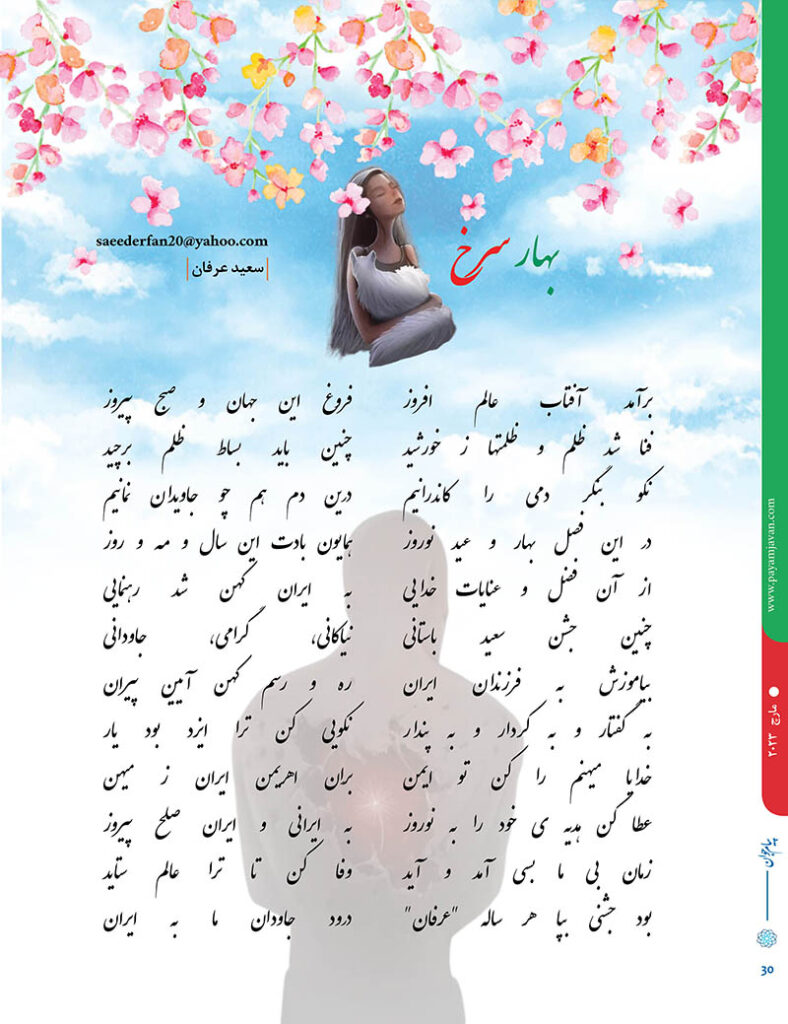 saeederfan20@yahoo.com
سعید عرفان
بهار سرخ
برآمد آفتاب عالم افروز فروغ این جهان و صبح پیروز
فنا شد ظلم و ظلمتها ز خورشید چنین باید بساط ظلم برچید
نکو بنگر دمی را کاندرانیم درین دم هم چو جاویدان نمانیم
در این فصل بهار و عید نوروز همایون بادت این سال و مه و روز
از آن فضل و عنایات خدایی به ایران کهن شد رهنمایی
چنین جشن سعید باستانی نیاکانی، گرامی، جاودانی
بیاموزش به فرزندان ایران ره و رسم کهن آیین پیران
به گفتار و به کردار و به پندار نکویی کن ترا ایزد بود یار
خدایا میهنم را کن تو ایمن بران اهریمن ایران ز میهن
عطا کن هدیه ی خود را به نوروز به ایرانی و ایران صلح پیروز
زمان بی ما بسی آمد و آید وفا کن تا ترا عالم ستاید
بود جشنی بپا هر ساله "عرفان" درود جاودان ما به ایران
www.payamjavan.com
مارچ ۲۰۲۳
پیام جوان
30